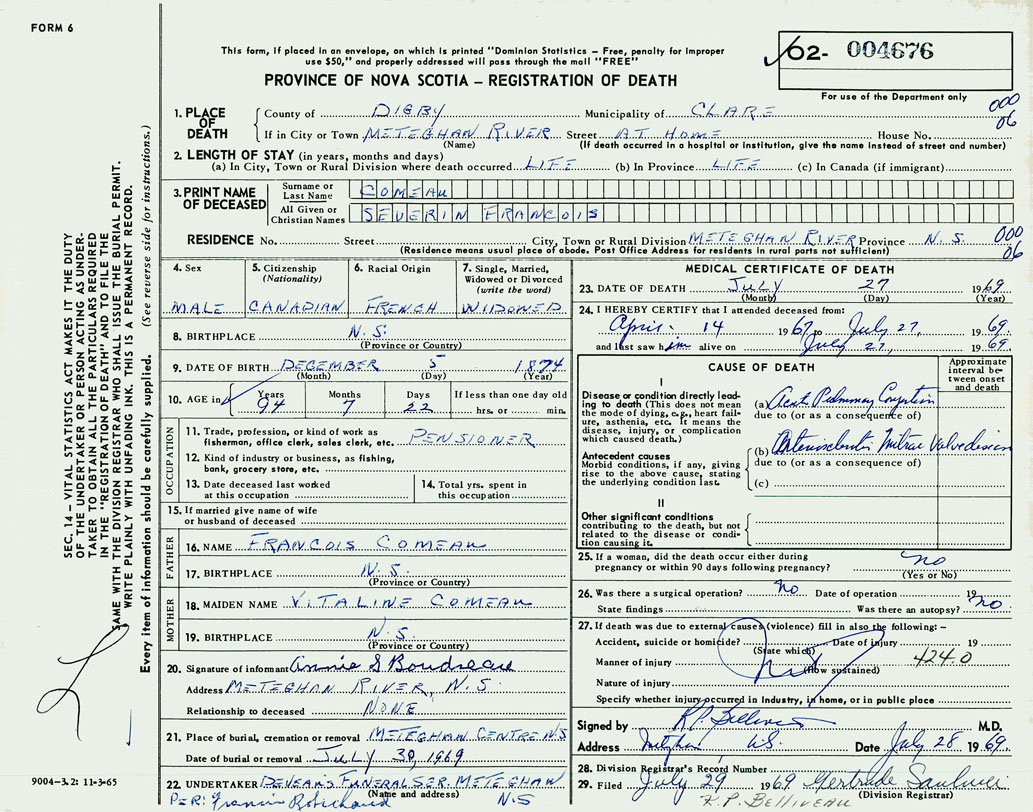 FORM 6
This form, if placed in an envelope, on which is printed "Dominion Statistics – Free, penalty for improper
use $50," and properly addressed will pass through the mail "FREE"
PROVINCE OF NOVA SCOTIA – REGISTRATION OF DEATH
62- 004676
For use of the Department only
000
06
SEC. 14 – VITAL STATISTICS ACT MAKES IT THE DUTY
OF THE UNDERTAKER OR PERSON ACTING AS UNDER-
TAKER TO OBTAIN ALL THE PARTICULARS REQUIRED
IN THE "REGISTRATION OF DEATH" AND TO FILE THE
SAME WITH THE DIVISION REGISTRAR WHO SHALL ISSUE THE BURIAL PERMIT.
WRITE PLAINLY WITH UNFADING INK. THIS IS A PERMANENT RECORD.
Every item of information should be carefully supplied. (See reverse side for instructions.)
1. PLACE OF DEATH County of DIGBY Municipality of CLARE
If in City or Town METEGHAN RIVER Street AT HOME House No.
(Name) (If death occurred in a hospital or institution, give the name instead of street and number)
2. LENGTH OF STAY (in years, months and days)
(a) In City, Town or Rural Division where death occurred LIFE (b) In Province LIFE (c) In Canada (if immigrant)
3. PRINT NAME OF DECEASED Surname or Last Name COMEAU
All Given or Christian Names SEVERIN FRANCOIS
RESIDENCE No. Street City, Town or Rural Division METEGHAN RIVER Province N.S. 000
(Residence means usual place of abode. Post Office Address for residents in rural parts not sufficient) 06
4. Sex 5. Citizenship (Nationality) 6. Racial Origin 7. Single, Married, Widowed or Divorced (write the word)
MALE CANADIAN FRENCH WIDOWED
8. BIRTHPLACE N.S.
(Province or Country)
9. DATE OF BIRTH DECEMBER 5 1874
(Month) (Day) (Year)
10. AGE in Years Months Days If less than one day old
94 7 22 hrs. or min.
OCCUPATION
11. Trade, profession, or kind of work as
fisherman, office clerk, sales clerk, etc. PENSIONER
12. Kind of industry or business, as fishing,
bank, grocery store, etc.
13. Date deceased last worked
at this occupation
14. Total yrs. spent in
this occupation
15. If married give name of wife
or husband of deceased
FATHER
16. NAME FRANCOIS COMEAU
17. BIRTHPLACE N.S.
(Province or Country)
MOTHER
18. MAIDEN NAME VITALINE COMEAU
19. BIRTHPLACE N.S.
(Province or Country)
20. Signature of informant Annie S Boudreau
Address METEGHAN RIVER, N.S.
Relationship to deceased NONE
21. Place of burial, cremation or removal METEGHAN CENTRE N.S
Date of burial or removal JULY 30, 1969
22. UNDERTAKER DEVEAU'S FUNERAL SER. METEGHAN
(Name and address) N.S
PER: Francis Robichaud
9004–3.2: 11-3-65
MEDICAL CERTIFICATE OF DEATH
23. DATE OF DEATH JULY 27 1969
(Month) (Day) (Year)
24. I HEREBY CERTIFY that I attended deceased from:
April 14 1967 to July 27, 1969.
and last saw him alive on July 27, 1969.
CAUSE OF DEATH
Approximate interval be-
tween onset
and death
I
Disease or condition directly lead-
ing to death (This does not mean
the mode of dying, e.g., heart fail-
ure, asthenia, etc. It means the
disease, injury, or complication
which caused death.)
(a) Acute Pulmonary Congestion
due to (or as a consequence of)
Antecedent causes
Morbid conditions, if any, giving
rise to the above cause, stating
the underlying condition last.
(b) Arteriosclerotic Mitral Valve disease
due to (or as a consequence of)
(c)
II
Other significant conditions
contributing to the death, but not
related to the disease or condi-
tion causing it.
25. If a woman, did the death occur either during
pregnancy or within 90 days following pregnancy? no
(Yes or No)
26. Was there a surgical operation? no Date of operation 19
State findings Was there an autopsy? no
27. If death was due to external causes (violence) fill in also the following: –
Accident, suicide or homicide? Date of injury 19
(State which)
Manner of injury 424.0
(How sustained)
Nature of injury
Specify whether injury occurred in Industry, in home, or in public place
Signed by R.P. Belliveau M.D.
Address Meteghan N.S. Date July 28 1969.
28. Division Registrar's Record Number
29. Filed July 29 1969 Gertrude Saulnier
(Division Registrar)
R.P. BELLIVEAU